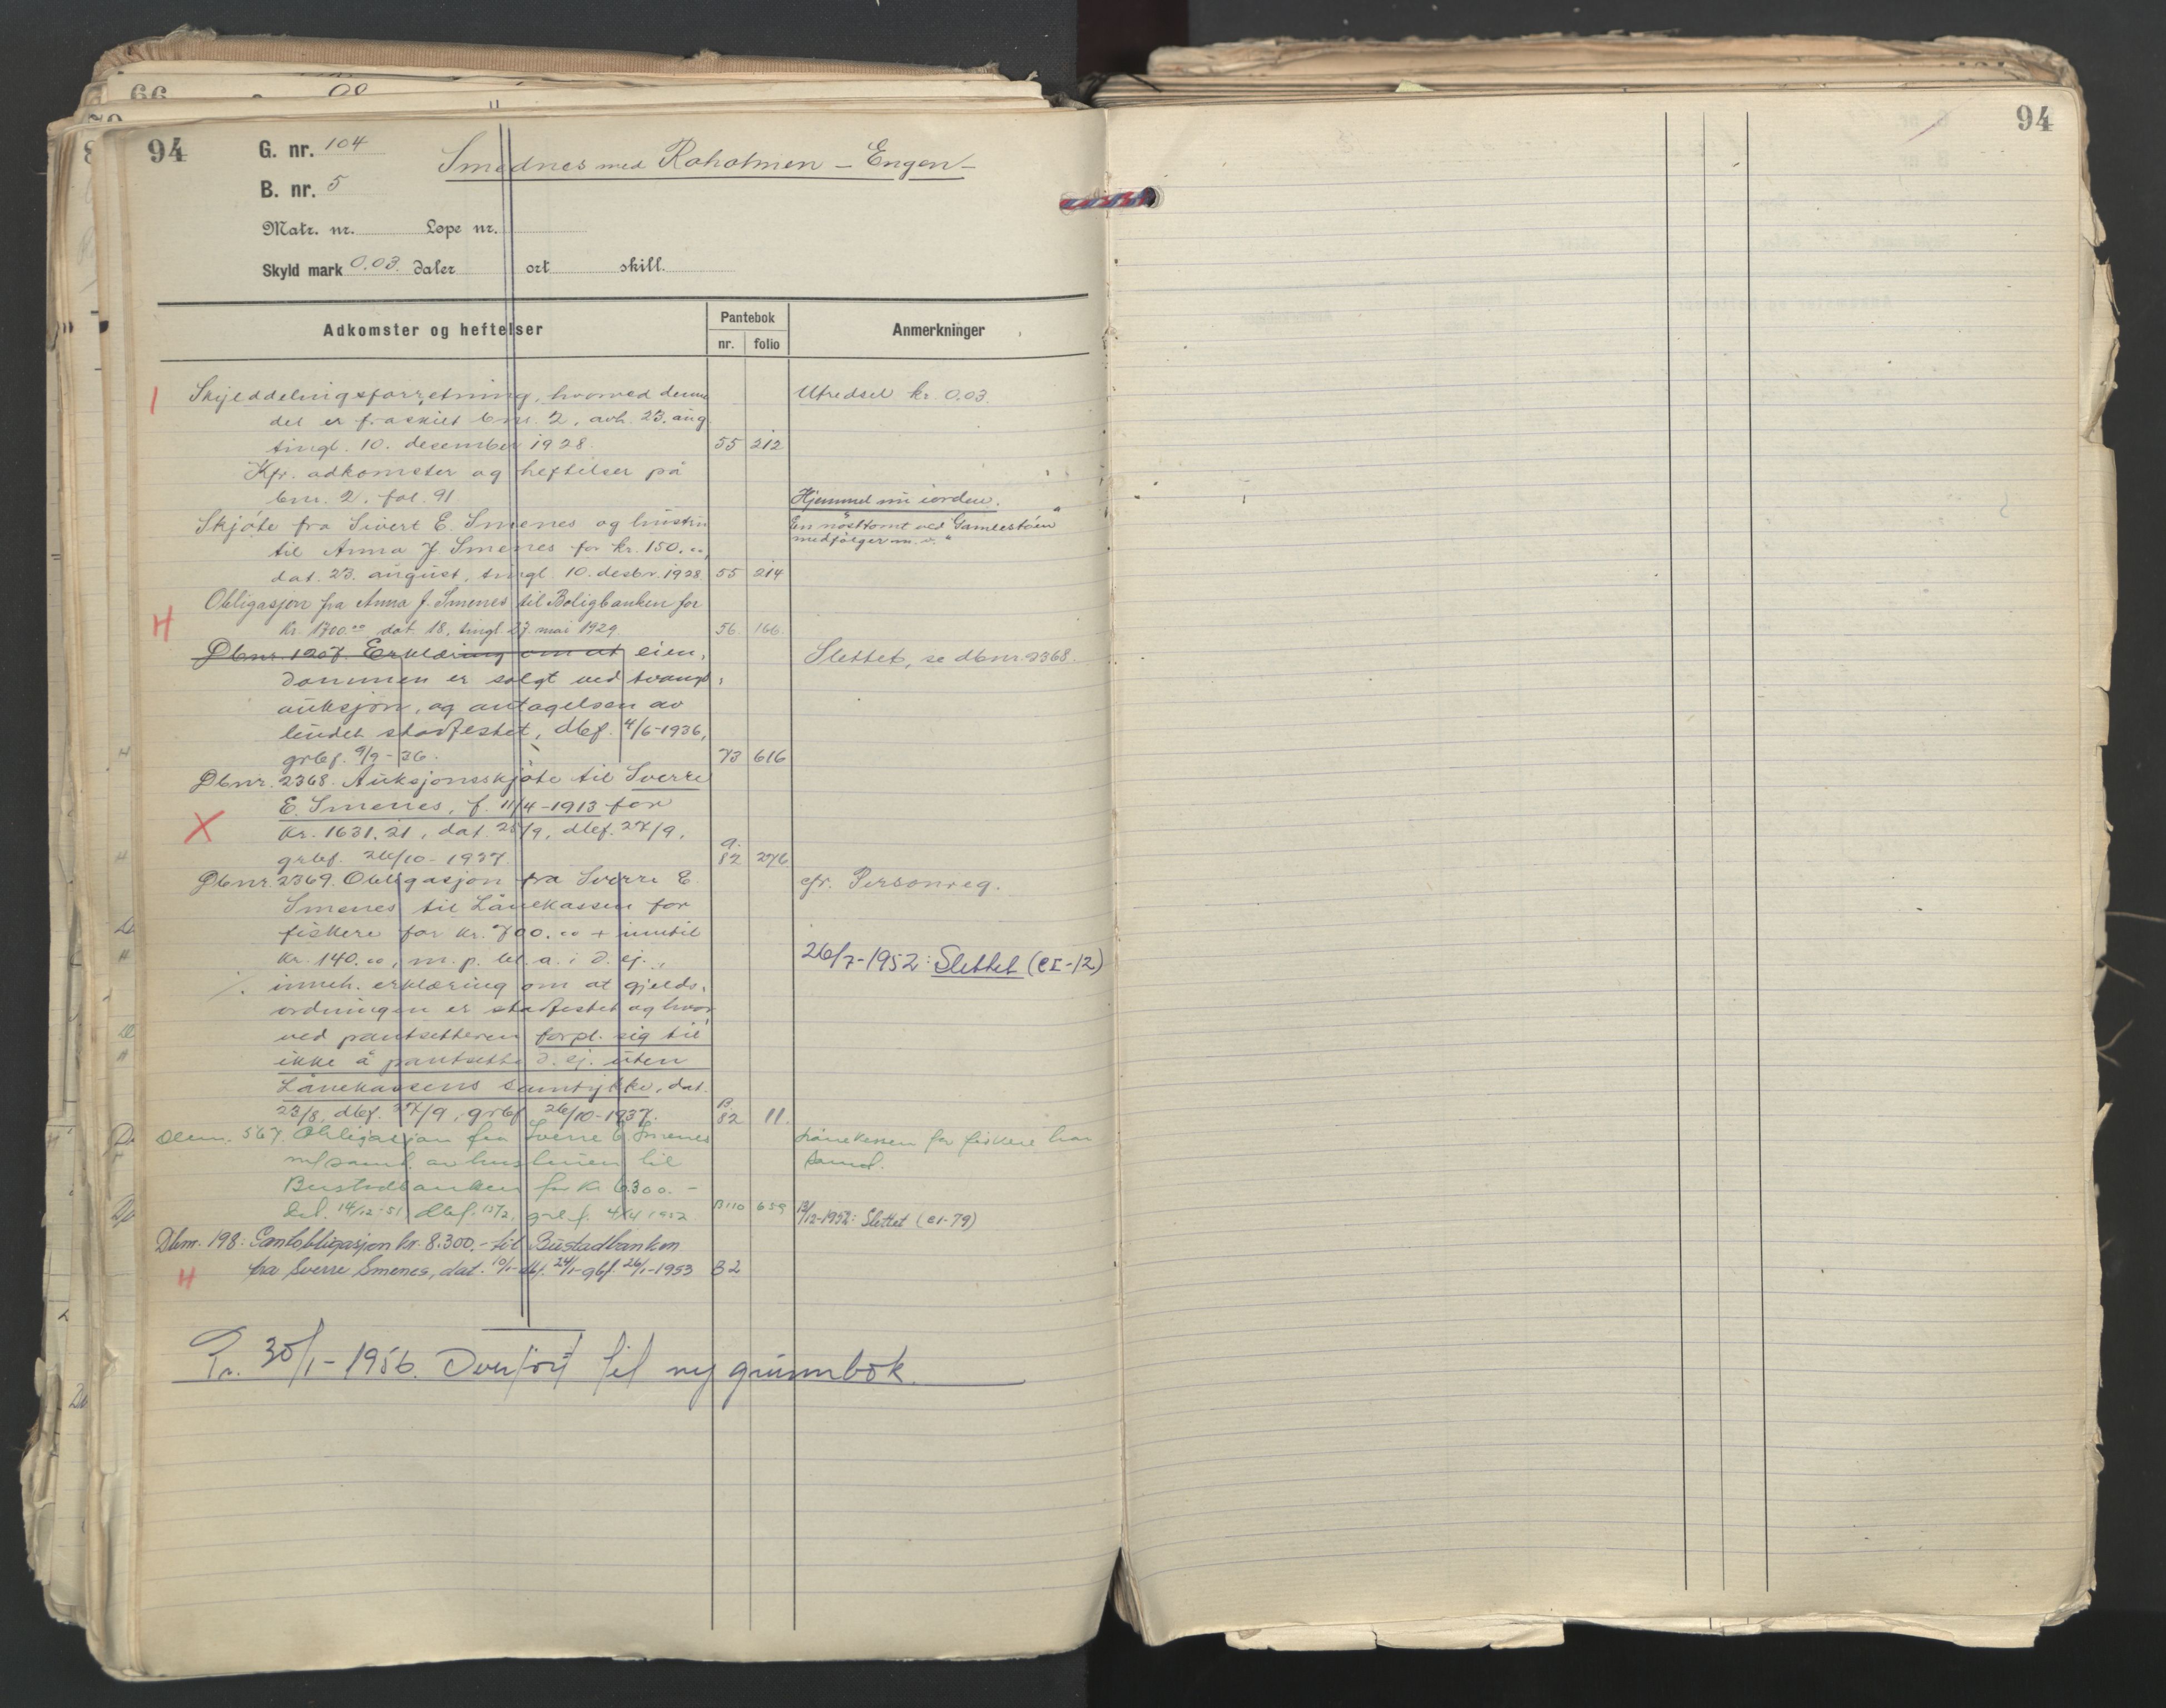 66
94
G. nr. 104
Smednes med Roholmen – Engen –
B. nr. 5
Matr. nr. Løpe nr.
Skyld mark 0.03. daler ort skill.
Adkomster og heftelser
Pantebok
nr. folio
Anmerkninger
1 Skylddelingsforretning, hvorved denne
Utredsel kr. 0.03.
del er fraskilt bnr. 2, avh. 23. aug.
tingl. 10. desember 1928. 55 212
Kfr. adkomster og heftelser på
bnr. 2. fol. 91
Hjemmel nu iorden.
Skjöte fra Sivert E. Smenes og hustru
En nösttomt ved "Gamlestöen"
til Anna J Smenes for kr. 150.00,
medfølger m. v. "
dat. 23. august, tingl. 10. desbr. 1928. 55 214
Obligasjon fra Anna J. Smenes til Boligbanken for
H kr. 1700.00 dat. 18, tingl. 27. mai 1929. 56. 166.
Dbnr. 1207. Erklæring om at eien-
Slettet, se dbnr. 2368.
dommen er solgt ved tvangs-
auksjon, og antagelsen av
budet stadfestet, dbf. 4/6-1936,
grbf. 9/9-36. 73 616
Dbnr. 2368. Auksjonsskjöte til Sverre
E. Smenes, f. 11/4-1913 for
X kr. 1631.21, dat. 25/9, dbf. 27/9,
grbf. 26/10-1937. a. 82 276
Dbnr. 2369. Obligasjon fra Sverre E.
cfr. Personreg.
Smenes til Lånekassen for
fiskere for kr. 700.00 + inntil
kr. 140.00, m. p. bl. a. i d. ej.,
26/7-1952: Slettet (CI-12)
inneh. erklæring om at gjelds-
ordningen er stadfestet og hvor
ved pantsetteren forpl. sig til
ikke å pantsette d. ej. uten
Lånekassens samtykke, dat.
23/8, dbf. 27/9, grbf. 26/10-1937. B. 82 11.
Dbnr. 567. Obligasjon fra Sverre E Smenes
Lånekassen for fiskere har
m/samt. av hustruen til
samt.
Bustadbanken for kr. 6300.-
dat. 14/12-51, dbf. 15/2, grbf. 4/4 1952 B110 659
/12-1952: Slettet (CI-79)
Dbnr. 198: Pantobligasjon kr. 8.300.- til Bustadbanken
H fra Sverre Smenes, dat. 10/1- dbf. 24/1- gbf. 26/1-1953 B2
Pr. 30/1-1956. Overfört til ny grunnbok.
94